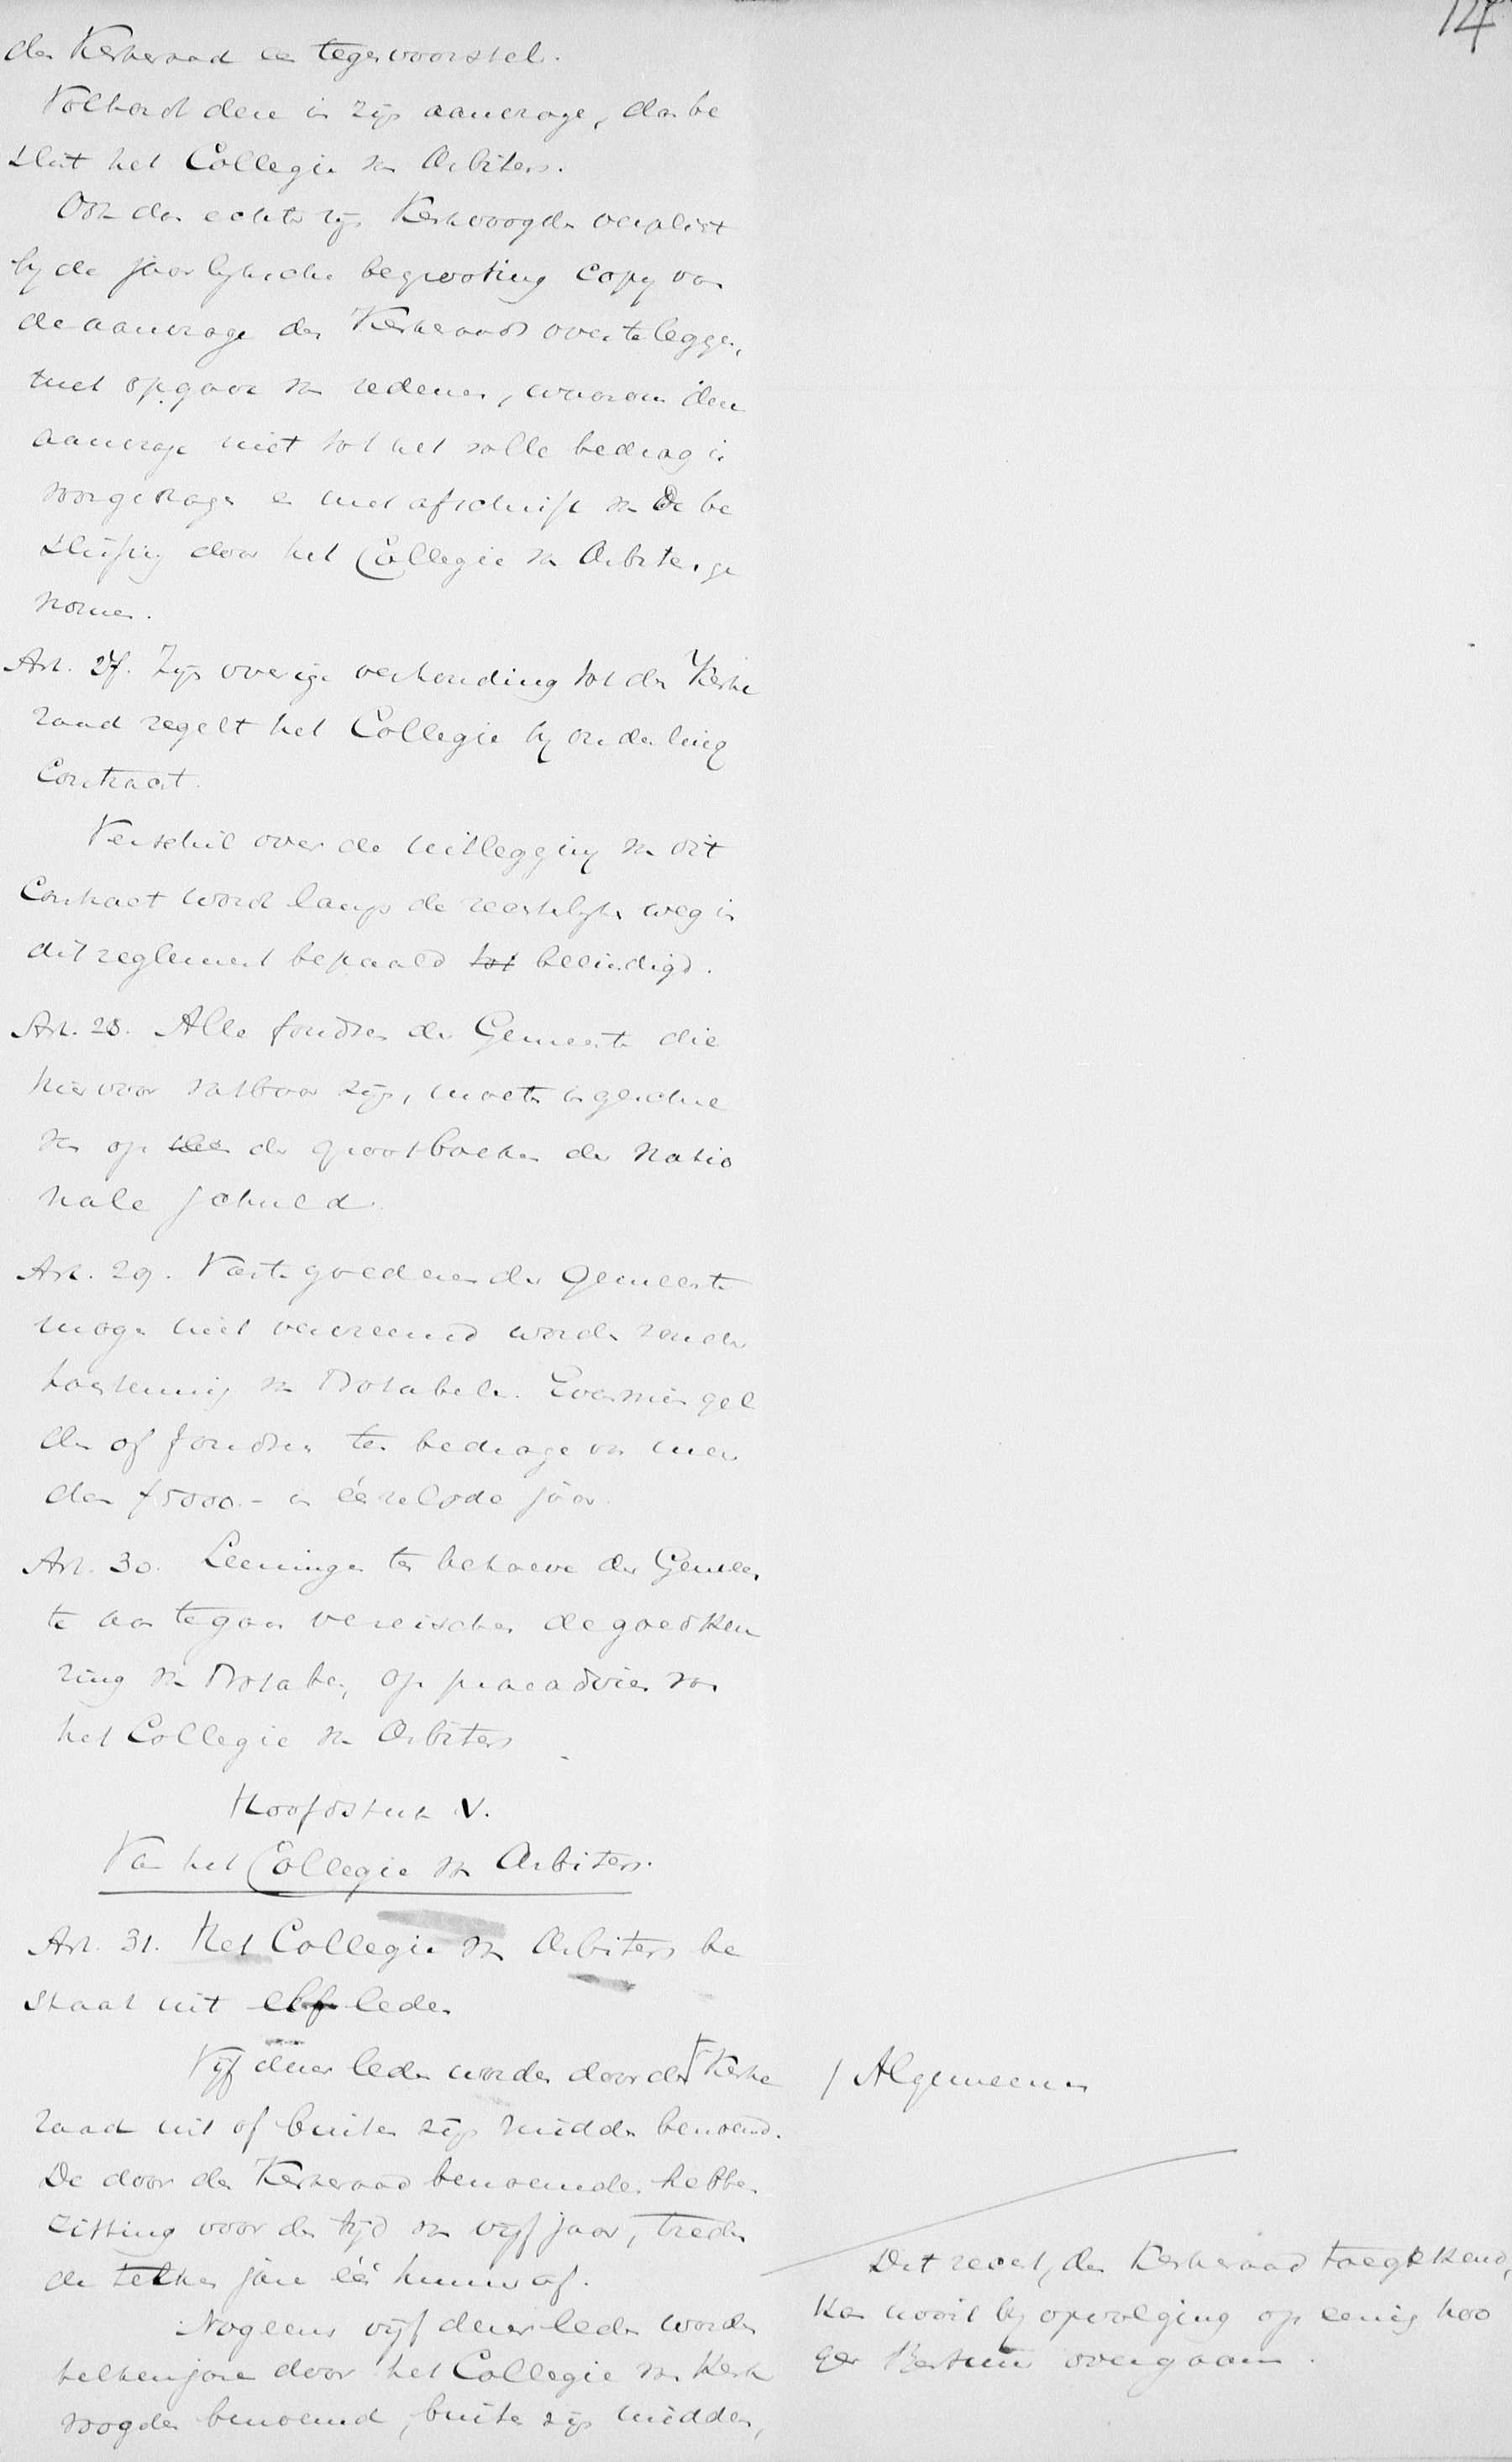 124
den Kerkeraad een tegenvoorstel.
Volhardt deze in zijn aanvrage, dan be
sluit het Collegie van Arbiters.
Ook dan echter zijn Kerkvoogden verplicht
bij de jaarlijksche begrooting copy van
de aanvrage des Kerkeraads over te leggen,
met opgave van redenen, waarom deze
aanvrage niet tot het volle bedrag is
voorgedragen en met afschrift van de be
slissing door het Collegie van Arbiters ge
nomen.
Art. 27. Zijn overige verhouding tot den Kerke
raad regelt het Collegie bij onderling
Contract.
Verschil over de uitlegging van dit
Contract wordt langs de rechtelijken weg in
dit reglement bepaald tot beeindigd.
Art. 28. Alle fondsen der Gemeente die
hiervoor vatbaar zijn, moeten ingeschre
ven op de grootboeken der natio
nale schuld.
Art. 29. Vaste goederen der Gemeente
mogen niet vervreemd worden zonder
toestemming van Notabelen. Evenmin gel
den of fondsen ten bedrage van meer
dan f 5000.- in éénzelfde jaar.
Art. 30. Leeningen ten behoeve der Gemeen
te aan te gaan vereischen de goedkeu
ring van Notabelen, op praeadvies van
het Collegie van Arbiters
Hoofdstuk V.
Van het Collegie van Arbiters.
Art. 31. Het Collegie van Arbiters be
staat uit elf leden
Vijf dezer leden worden door den Γ Kerke
raad uit of buiten zijn midden benoemd.
De door den Kerkeraad benoemden hebben
zitting voor den tijd van vijf jaar, treden
de telken jare één hunner af.
Nogeens vijf dezer leden worden
telkenjare door het Collegie van Kerk
voogden benoemd, buiten zijn midden,
/ Algemeenen
Dit recht, den Kerkeraad toegekend,
kan nooit bij opvolging op eenig hoo
ger Bestuur overgaan.